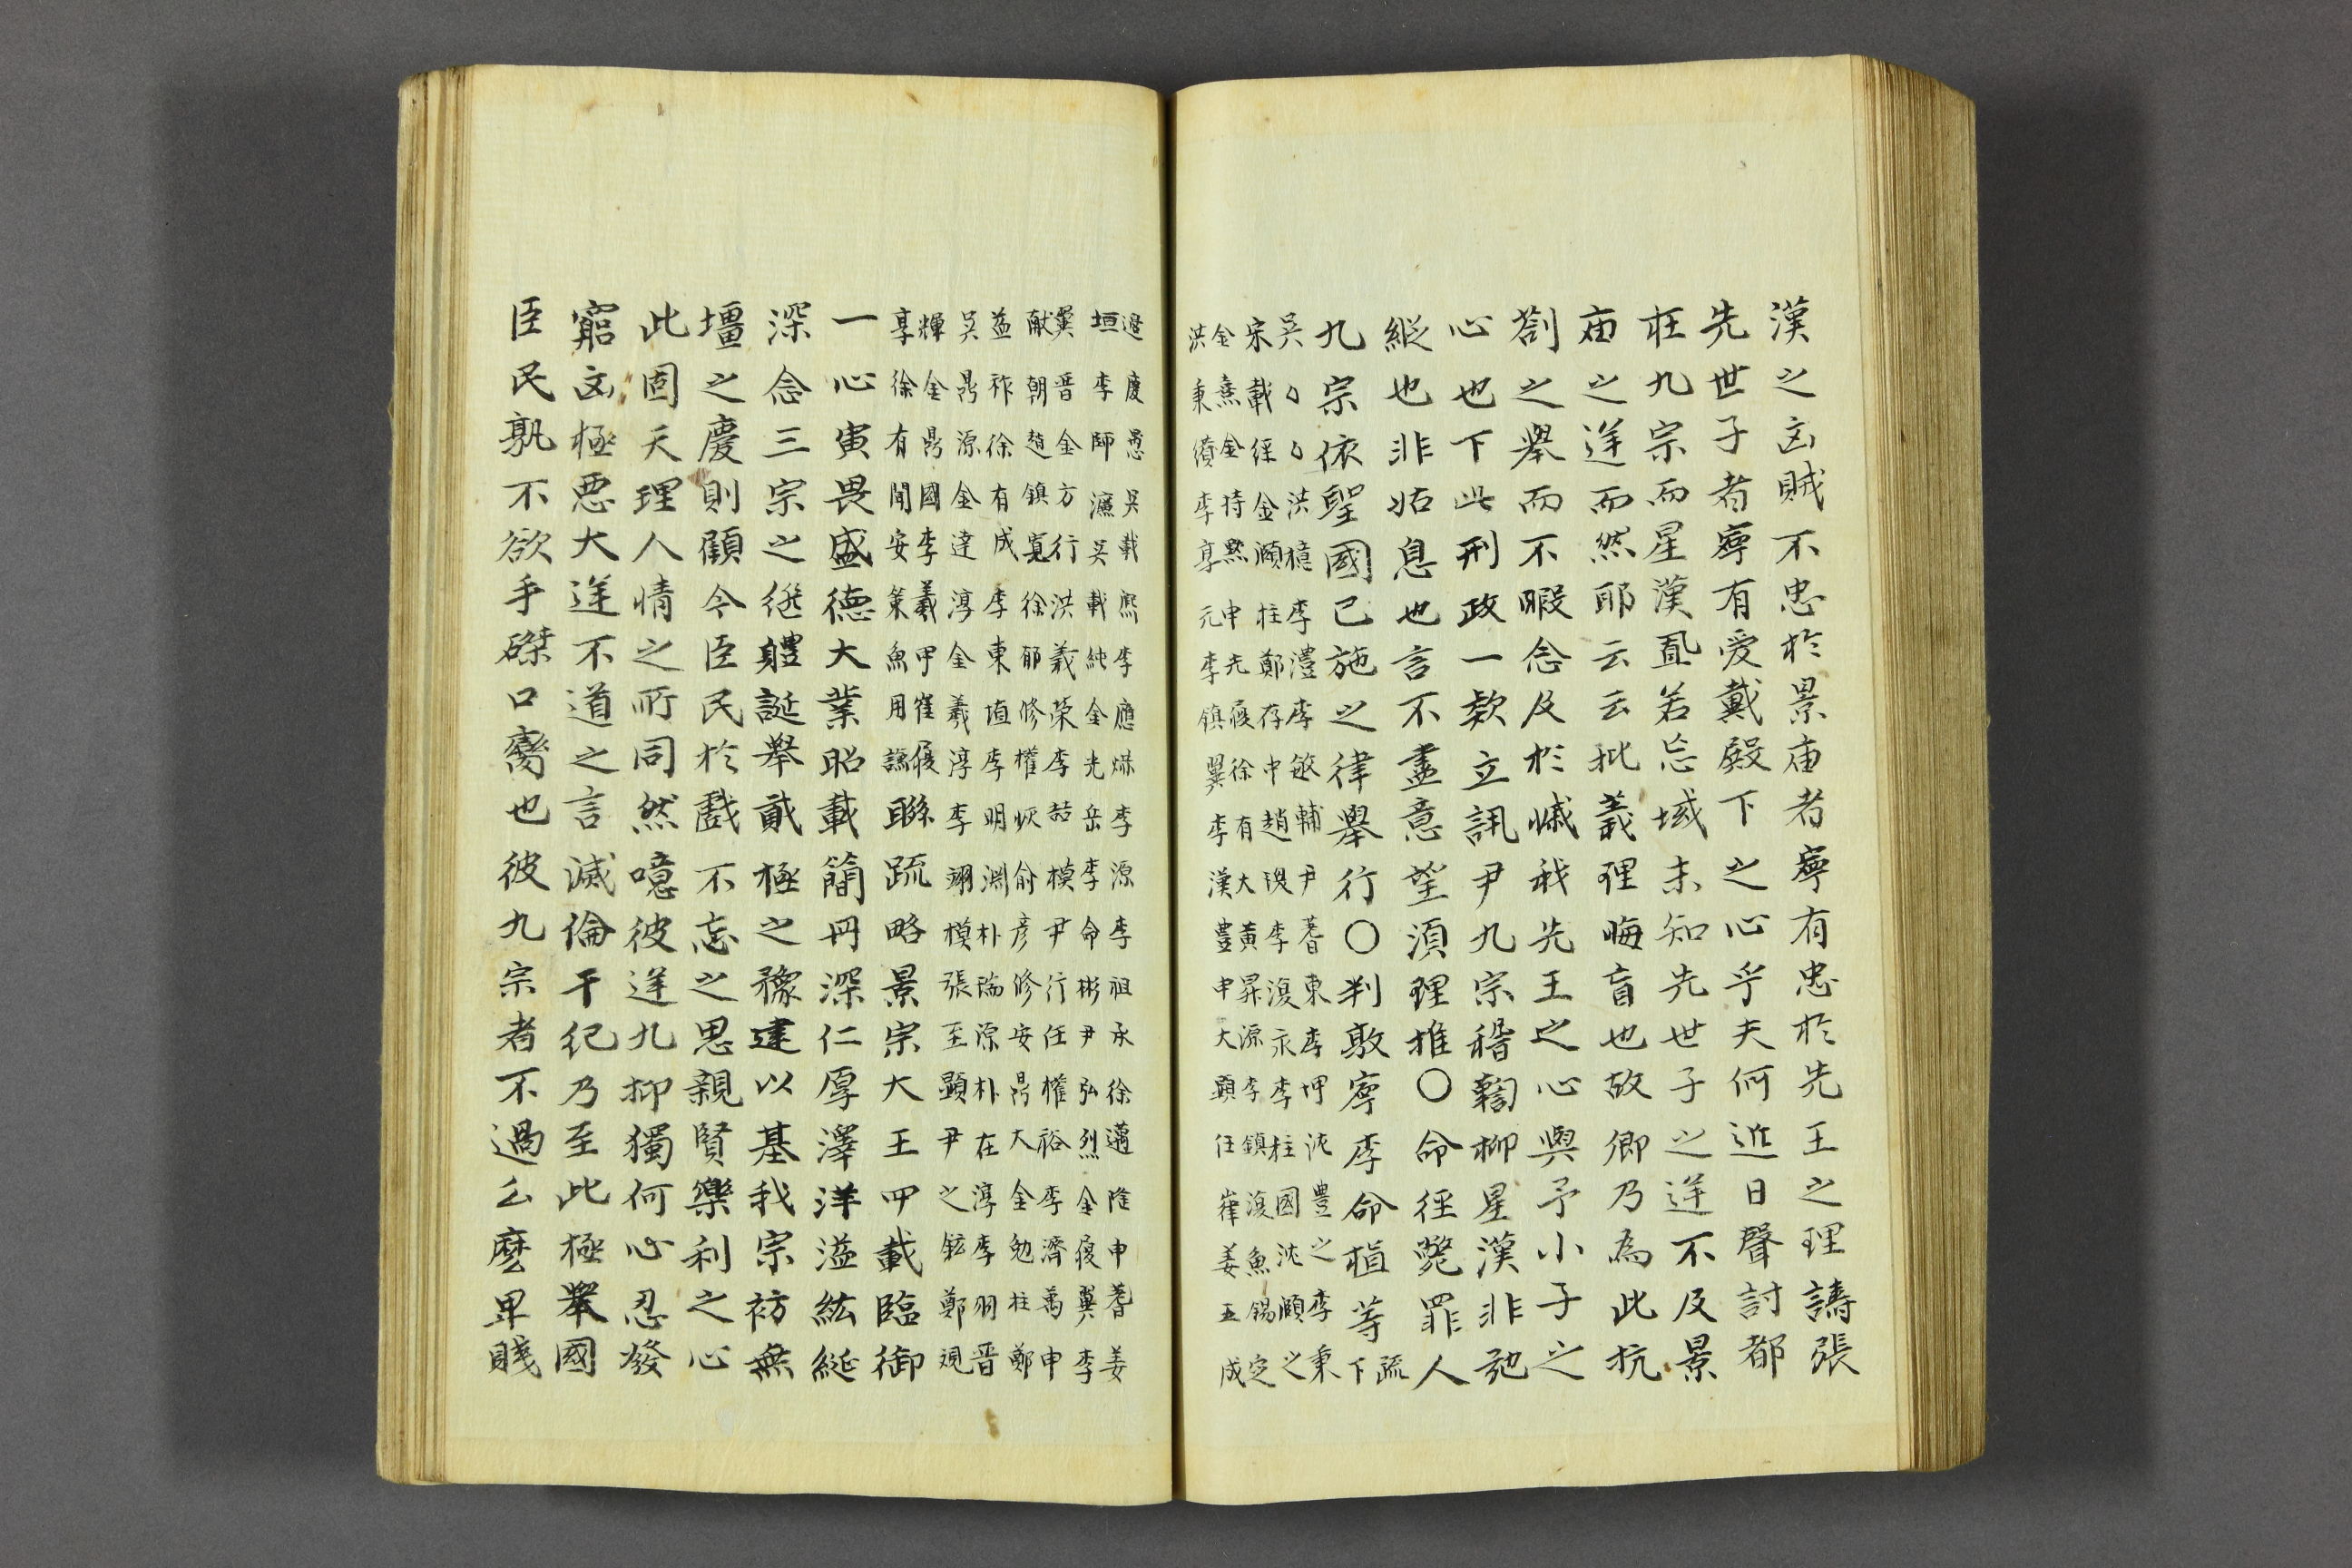 漢之凶賊不忠於景庙者寧有忠於先王之理譸張
先世子者寧有愛戴殿下之心乎夫何近日聲討都
在九宗而星漢置若忘域未知先世子之逆不及景
庙之逆而然耶云云批義理晦盲也故卿乃為此抗
劄之舉而不暇念及於慽我先王之心與予小子之
心也下此刑政一欵立訊尹九宗稽鞫柳星漢非弛
縱也非姑息也言不盡意望湏理推〇命徑斃罪人
九宗依聖國已施之律舉行〇判敦寧李命植等下疏
吴〻〻洪檍李澧李敏輔尹蓍東李坤沈豊之李秉
宋載經金頤柱鄭存中趙㻐李復永李柱國沈頤之
金熹金持默申光履徐有大黄昇源李鎮復魚錫定
洪秉纉李享元李鎮翼李漢豊申大顕任嵂姜五成
邊慶愚吴載熙李應爀李源李祖承徐邁隆申蓍姜
垣李師濂吴載純金光岳李命彬尹弘烈金履翼李
翼晋金方行洪義荣李喆模尹行任權裕李濟萬申
献朝趙鎮寛徐郁修權烣俞彦修安昌大金勉柱鄭
益祚徐有成李東埴李明淵朴瑞源朴在淳李羽晋
吴鼎源金達淳金羲淳李翊模張至顯尹之鉉鄭䂓
輝金鼎國李羲甲崔履
享徐有聞安策魚用謙聮疏略景宗大王四載臨御
一心寅畏盛德大業昭載簡冊深仁厚澤洋溢紘綖
深念三宗之継軆誕舉貳極之豫建以基我宗祊無
壃之慶則顧今臣民於戲不忘之思親賢樂利之心
此固天理人情之所同然噫彼逆九抑獨何心忍發
窮凶極悪大逆不道之言滅倫干紀乃至此極舉國
臣民孰不欲手磔口臠也彼九宗者不過么麼卑賤